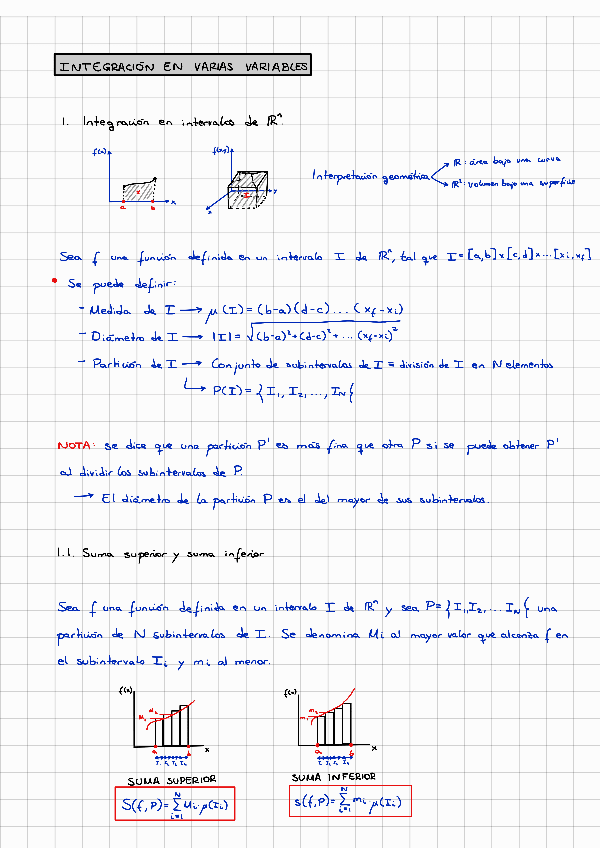 INTEGRACIÓN EN VARIAS VARIABLES
1. Integración en intervalos de ℝⁿ.
f(x) x a b
f(x,y) y x I
Interpretación geométrica
ℝ: área bajo una curva
ℝ²: volumen bajo una superficie
Sea f una función definida en un intervalo I de ℝⁿ, tal que I=[a,b]x[c,d]x...[xi,xf]
• Se puede definir:
- Medida de I → μ(I)=(b-a)(d-c)...(xf-xi)
- Diámetro de I → |I|=√(b-a)²+(d-c)²+...(xf-xi)²
- Partición de I → Conjunto de subintervalos de I = división de I en N elementos
↳ P(I)={I₁, I₂, ..., I_N}
NOTA: se dice que una partición P' es más fina que otra P si se puede obtener P'
al dividir los subintervalos de P.
→ El diámetro de la partición P es el del mayor de sus subintervalos.
1.1. Suma superior y suma inferior
Sea f una función definida en un intervalo I de ℝⁿ y sea P={I₁,I₂,...I_N} una
partición de N subintervalos de I. Se denomina Mi al mayor valor que alcanza f en
el subintervalo Ii y mi al menor.
f(x) M₂ M₁ a b x I₁ I₂ I₃ I₄
f(x) m₂ m₁ a b x I₁ I₂ I₃ I₄
SUMA SUPERIOR
SUMA INFERIOR
S(f,P)=∑ᵢ₌₁ᴺ Mi·μ(Ii)
s(f,P)=∑ᵢ₌₁ᴺ mi μ(Ii)